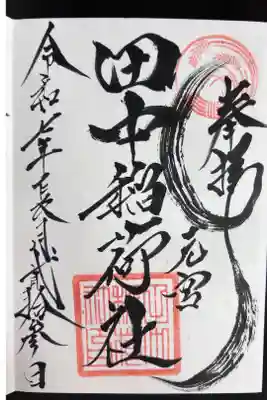 奉拝
元宮
田中稲荷社
令和七年長月弐拾参日